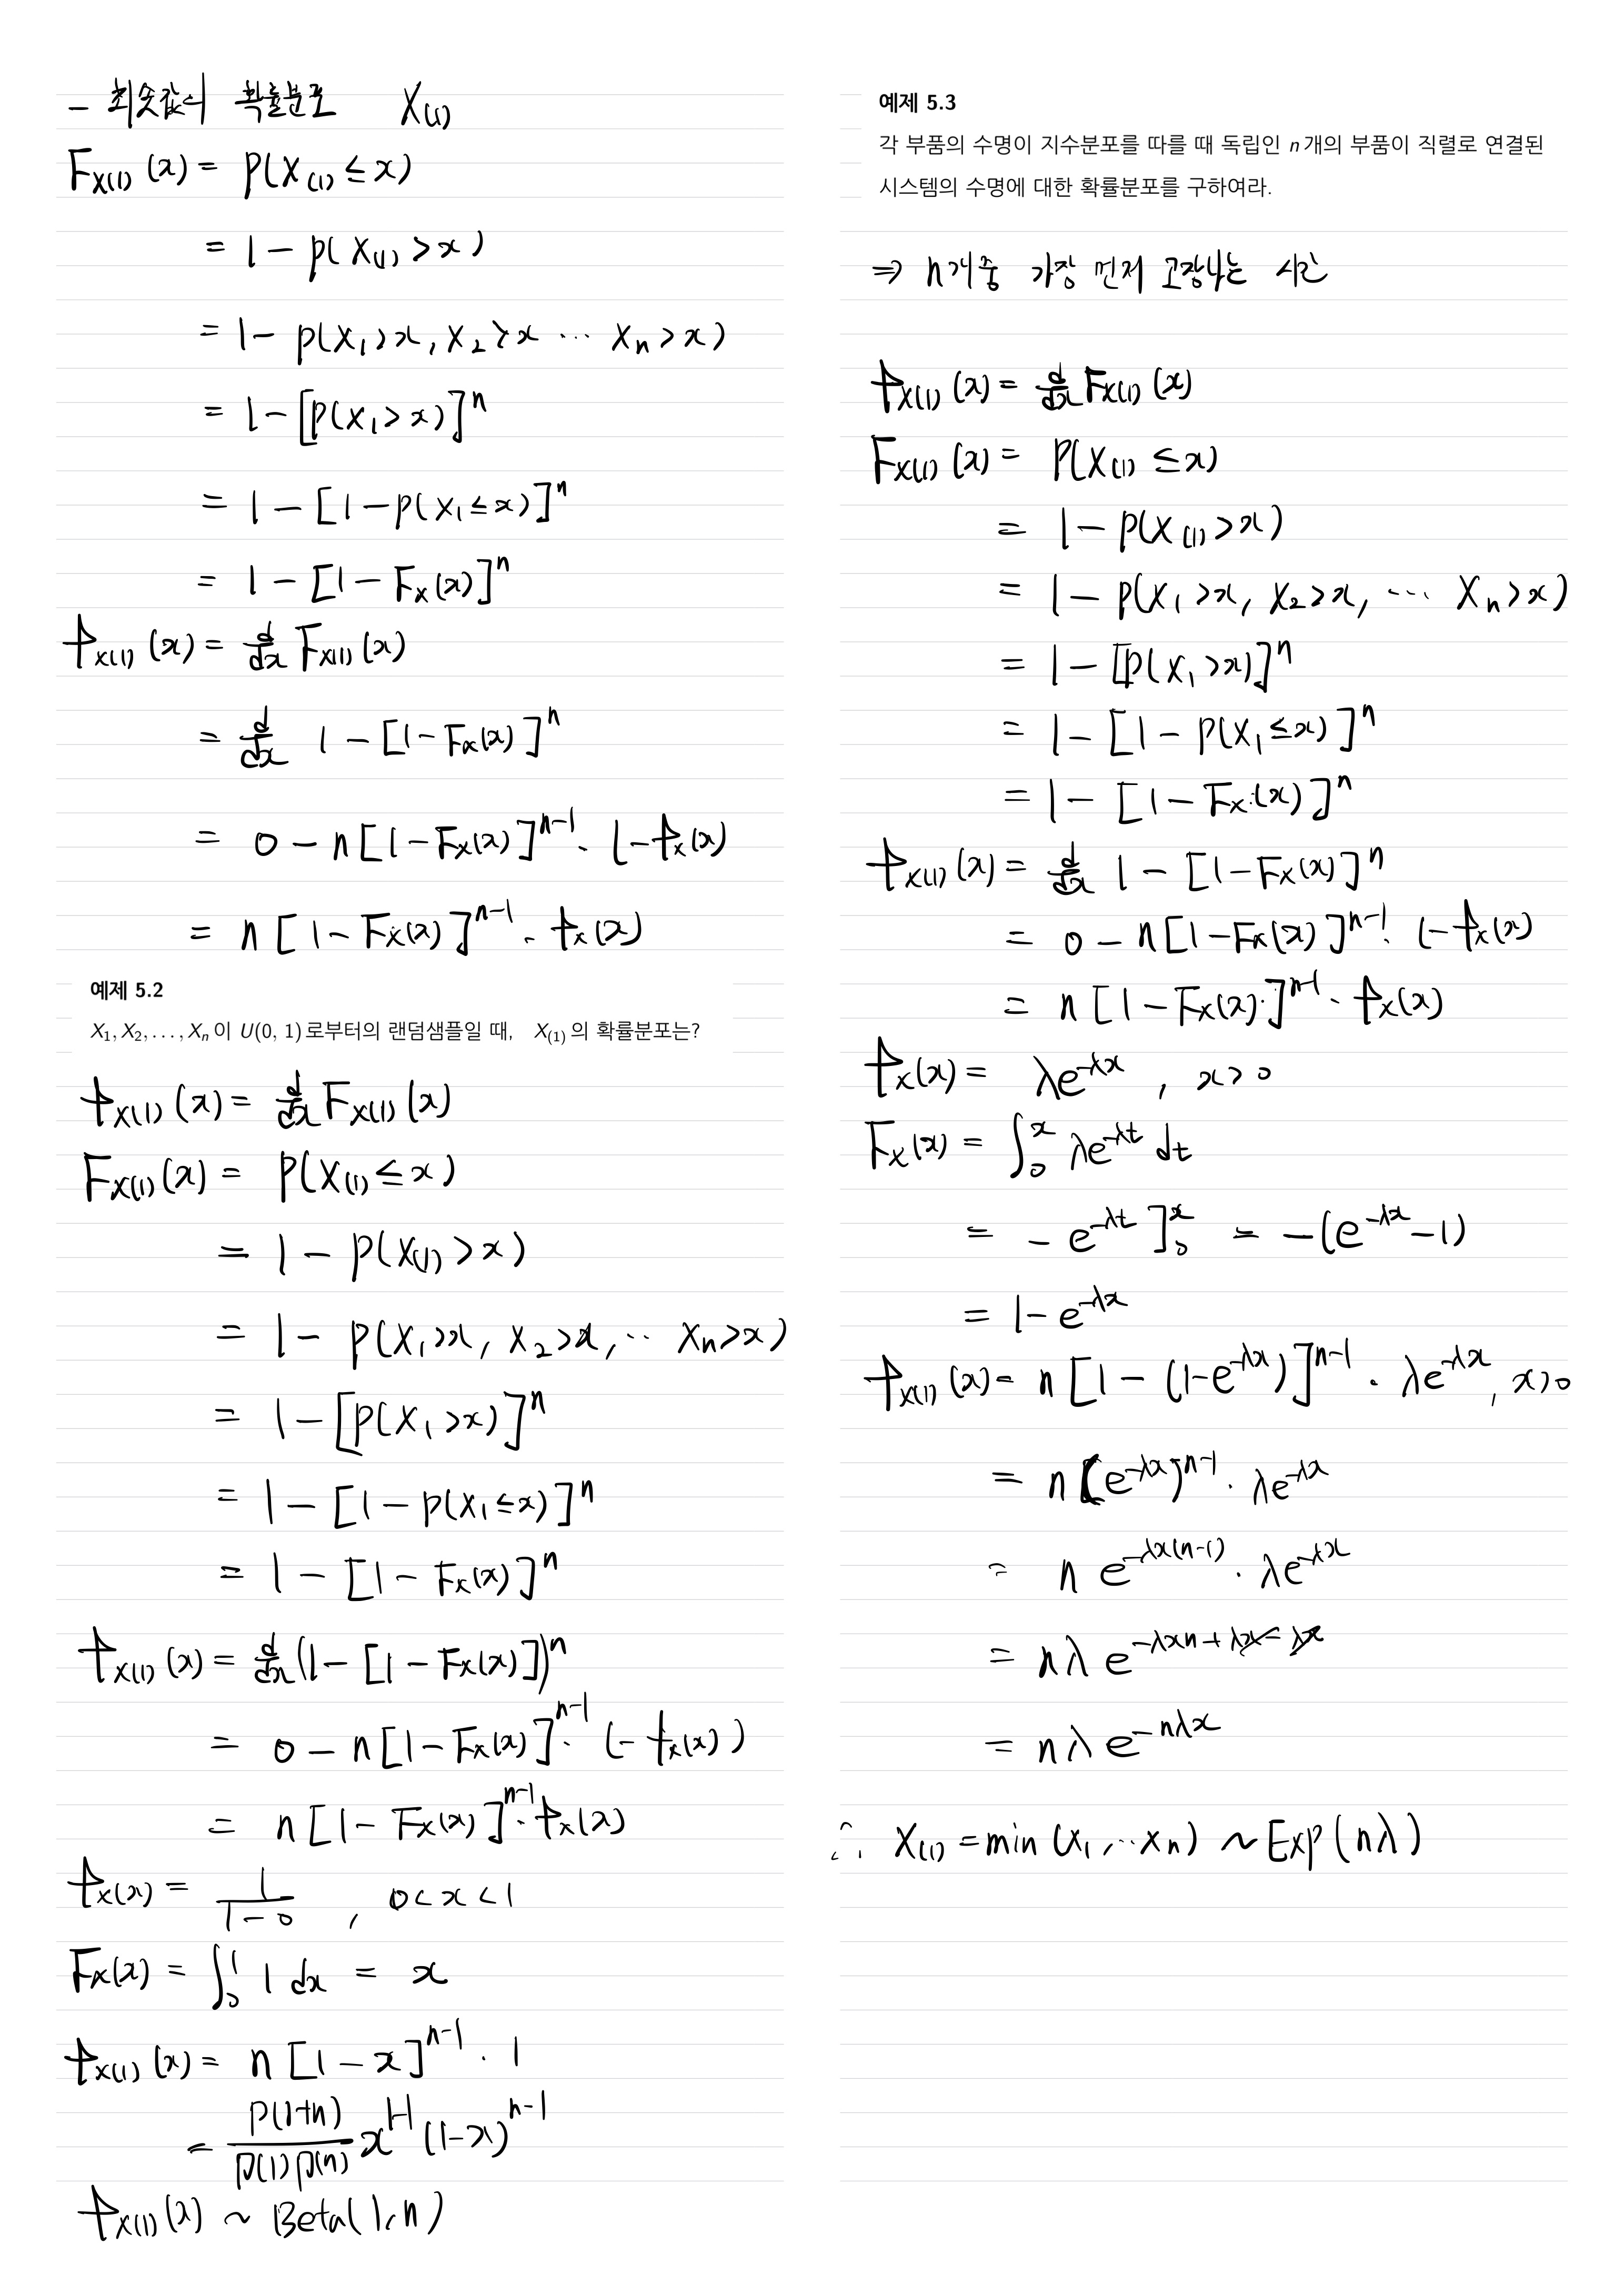 - 최솟값의 확률분포 X(1)
F_X(1) (x) = P(X(1) ≤ x)
= 1 - P(X(1) > x)
= 1 - P(X₁ > x, X₂ > x ... Xn > x)
= 1 - [P(X₁ > x)]^n
= 1 - [1 - P(X₁ ≤ x)]^n
= 1 - [1 - F_X(x)]^n
f_X(1) (x) = d/dx F_X(1) (x)
= d/dx 1 - [1 - F_X(x)]^n
= 0 - n[1 - F_X(x)]^{n-1} · (-f_X(x)
= n[1 - F_X(x)]^{n-1} · f_X(x)
예제 5.2
X₁, X₂, . . . , Xn 이 U(0, 1)로부터의 랜덤샘플일 때, X(1) 의 확률분포는?
f_X(1) (x) = d/dx F_X(1) (x)
F_X(1) (x) = P(X(1) ≤ x)
= 1 - P(X(1) > x)
= 1 - P(X₁ > x, X₂ > x, ... Xn > x)
= 1 - [P(X₁ > x)]^n
= 1 - [1 - P(X₁ ≤ x)]^n
= 1 - [1 - F_X(x)]^n
f_X(1) (x) = d/dx (1 - [1 - F_X(x)])^n
= 0 - n[1 - F_X(x)]^{n-1} · (-f_X(x))
= n[1 - F_X(x)]^{n-1} · f_X(x)
f_X(x) = 1/(1-0) , 0 < x < 1
F_X(x) = ∫₀¹ 1 dx = x
f_X(1) (x) = n[1 - x]^{n-1} · 1
= Γ(1+n)/Γ(1)Γ(n) x^{1-1} (1-x)^{n-1}
f_X(1) (x) ~ Beta(1, n)
예제 5.3
각 부품의 수명이 지수분포를 따를 때 독립인 n개의 부품이 직렬로 연결된
시스템의 수명에 대한 확률분포를 구하여라.
⇒ n개중 가장 먼저 고장나는 시간
f_X(1) (x) = d/dx F_X(1) (x)
F_X(1) (x) = P(X(1) ≤ x)
= 1 - P(X(1) > x)
= 1 - P(X₁ > x, X₂ > x, ... Xn > x)
= 1 - [P(X₁ > x)]^n
= 1 - [1 - P(X₁ ≤ x)]^n
= 1 - [1 - F_X(x)]^n
f_X(1) (x) = d/dx 1 - [1 - F_X(x)]^n
= 0 - n[1 - F_X(x)]^{n-1} · (-f_X(x)
= n[1 - F_X(x)]^{n-1} · f_X(x)
f_X(x) = λe^{-λx} , x > 0
F_X(x) = ∫₀ˣ λe^{-λt} dt
= - e^{-λt} ]₀ˣ = -(e^{-λx} - 1)
= 1 - e^{-λx}
f_X(1) (x) = n[1 - (1-e^{-λx})]^{n-1} · λe^{-λx}, x > 0
= n(e^{-λx})^{n-1} · λe^{-λx}
= n e^{-λx(n-1)} · λe^{-λx}
= nλ e^{-λxn + λx - λx}
= nλ e^{-nλx}
∴ X(1) = min (X₁, ... Xn) ~ Exp(nλ)